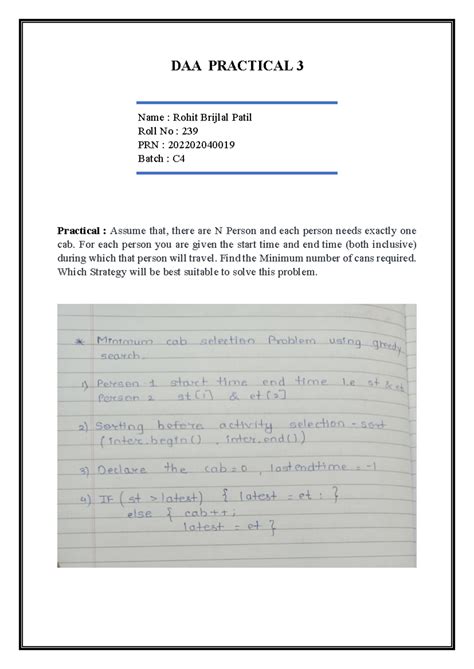 DAA PRACTICAL 3
Name : Rohit Brijlal Patil
Roll No : 239
PRN : 202202040019
Batch : C4
Practical : Assume that, there are N Person and each person needs exactly one
cab. For each person you are given the start time and end time (both inclusive)
during which that person will travel. Find the Minimum number of cans required.
Which Strategy will be best suitable to solve this problem.
* Minimum cab selection Problem using greedy
search.
1) Person 1 start time end time i.e st & et
Person 2 st[1] & et[2]
2) Sorting before activity selection - sort
(inter.begin() , inter.end())
3) Declare the cab=0 , lastendtime = -1
4) IF (st > latest) { latest = et : }
else { cab++;
latest = et ; }